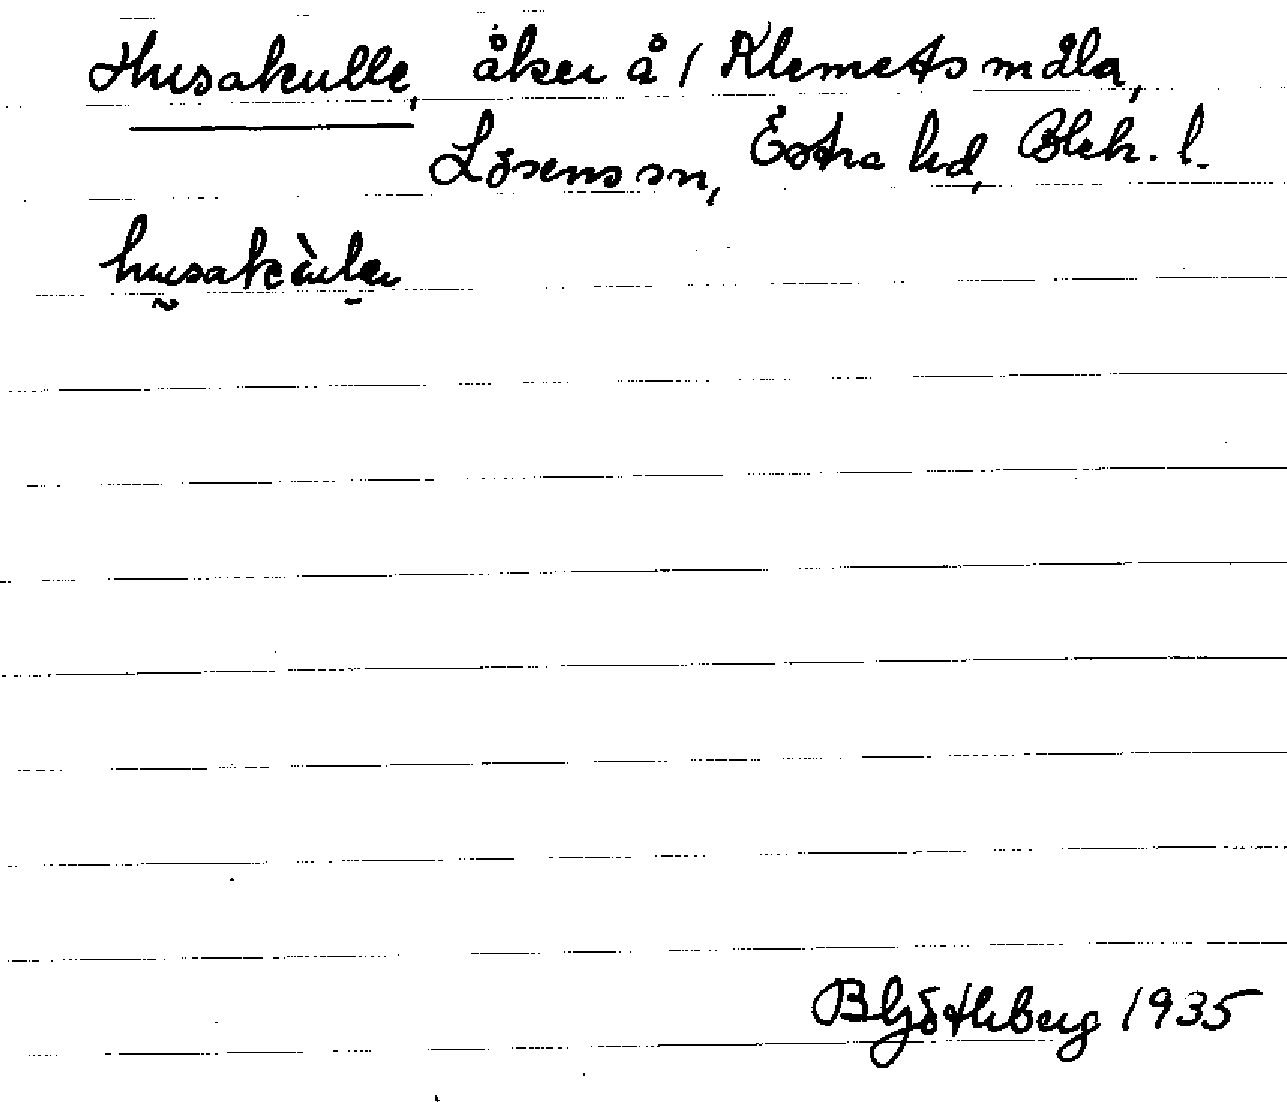 Husakulle, åker å 1 Klemetsmåla,
Lösens sn, Östra hd, Blek. l.
husakùler
B Götlberg 1935